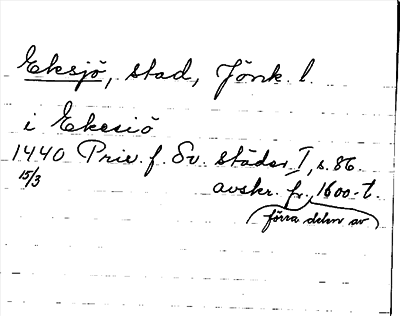 Eksjö, stad, Jönk. l.
i Ekesiö
1440 Priv. f. Sv. städer I, s. 86
15/3 avskr. fr. 1600-t.
förra delen av